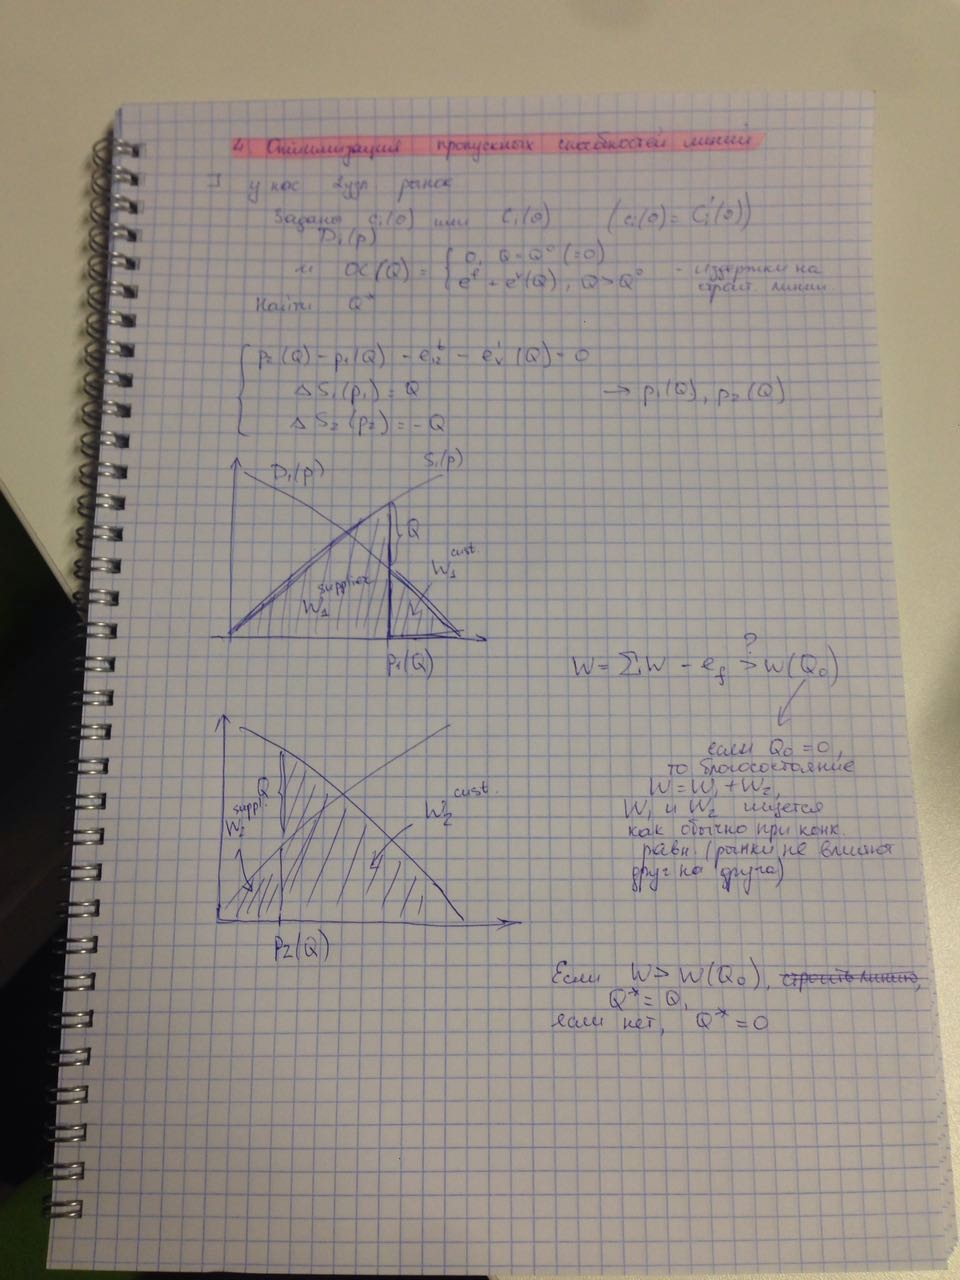 4. Оптимизация пропускных способностей линий
] у нас 2узл рынок
Задано ci(v) или Ci(v) (ci(v) = Ci'(v))
Di(p)
и OC(Q) = { 0, Q = Q⁰ (=0)
e^f + e^v(Q), Q > Q⁰ - издержки на
строит. линии.
Найти Q*
p₂(Q) - p₁(Q) - e₁₂ᵗ - e'ᵥ(Q) = 0
ΔS₁(p₁) = Q → p₁(Q), p₂(Q)
ΔS₂(p₂) = -Q
D₁(p) S₁(p)
Q
W₁ supplier
W₁ cust.
p₁(Q)
W = ΣW - e_f >? W(Q₀)
если Q₀ = 0,
то благосостояние
W = W₁ + W₂,
W₁ и W₂ ищется
как обычно при конк.
равн. (рынки не влияют
друг на друга)
Q
W₂ suppl.
W₂ cust.
p₂(Q)
Если W > W(Q₀), строить линию,
Q* = Q,
если нет, Q* = 0